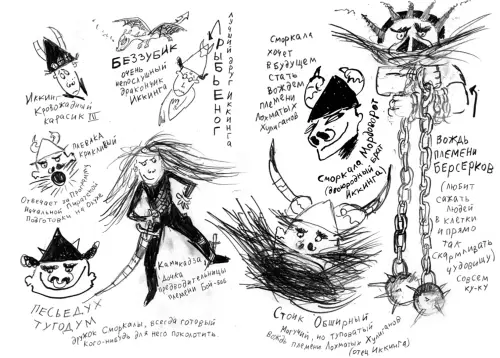 ИККИНГ
КРОВОЖАДНЫЙ
КАРАСИК III
БЕЗЗУБИК
ОЧЕНЬ
НЕПОСЛУШНЫЙ
ДРАКОНЧИК
ИККИНГА
РЫБЬЕНОГ
ЛУЧШИЙ ДРУГ ИККИНГА
ПЛЕВАКА
КРИКЛИВЫЙ
Отвечает за Программу
Начальной Пиратской
Подготовки на Олухе
ПЕСЬЕДУХ
ТУГОДУМ
ДРУЖОК Сморкалы, всегда готовый
кого-нибудь для него поколотить.
КАМИКАДЗА
ДОЧКА
предводительницы
племени Бой-баб
Сморкала
хочет
в будущем
стать
вождем
племени
Лохматых
Хулиганов
СМОРКАЛА МОРДОВОРОТ
(двоюродный брат
Иккинга)
Стоик Обширный
Могучий, но туповатый
вождь племени Лохматых Хулиганов
(отец Иккинга)
ВОЖДЬ
ПЛЕМЕНИ
БЕРСЕРКОВ
(любит
сажать
людей
в клетки
и прямо
так
скармливать
чудовищу)
Совсем
ку-ку